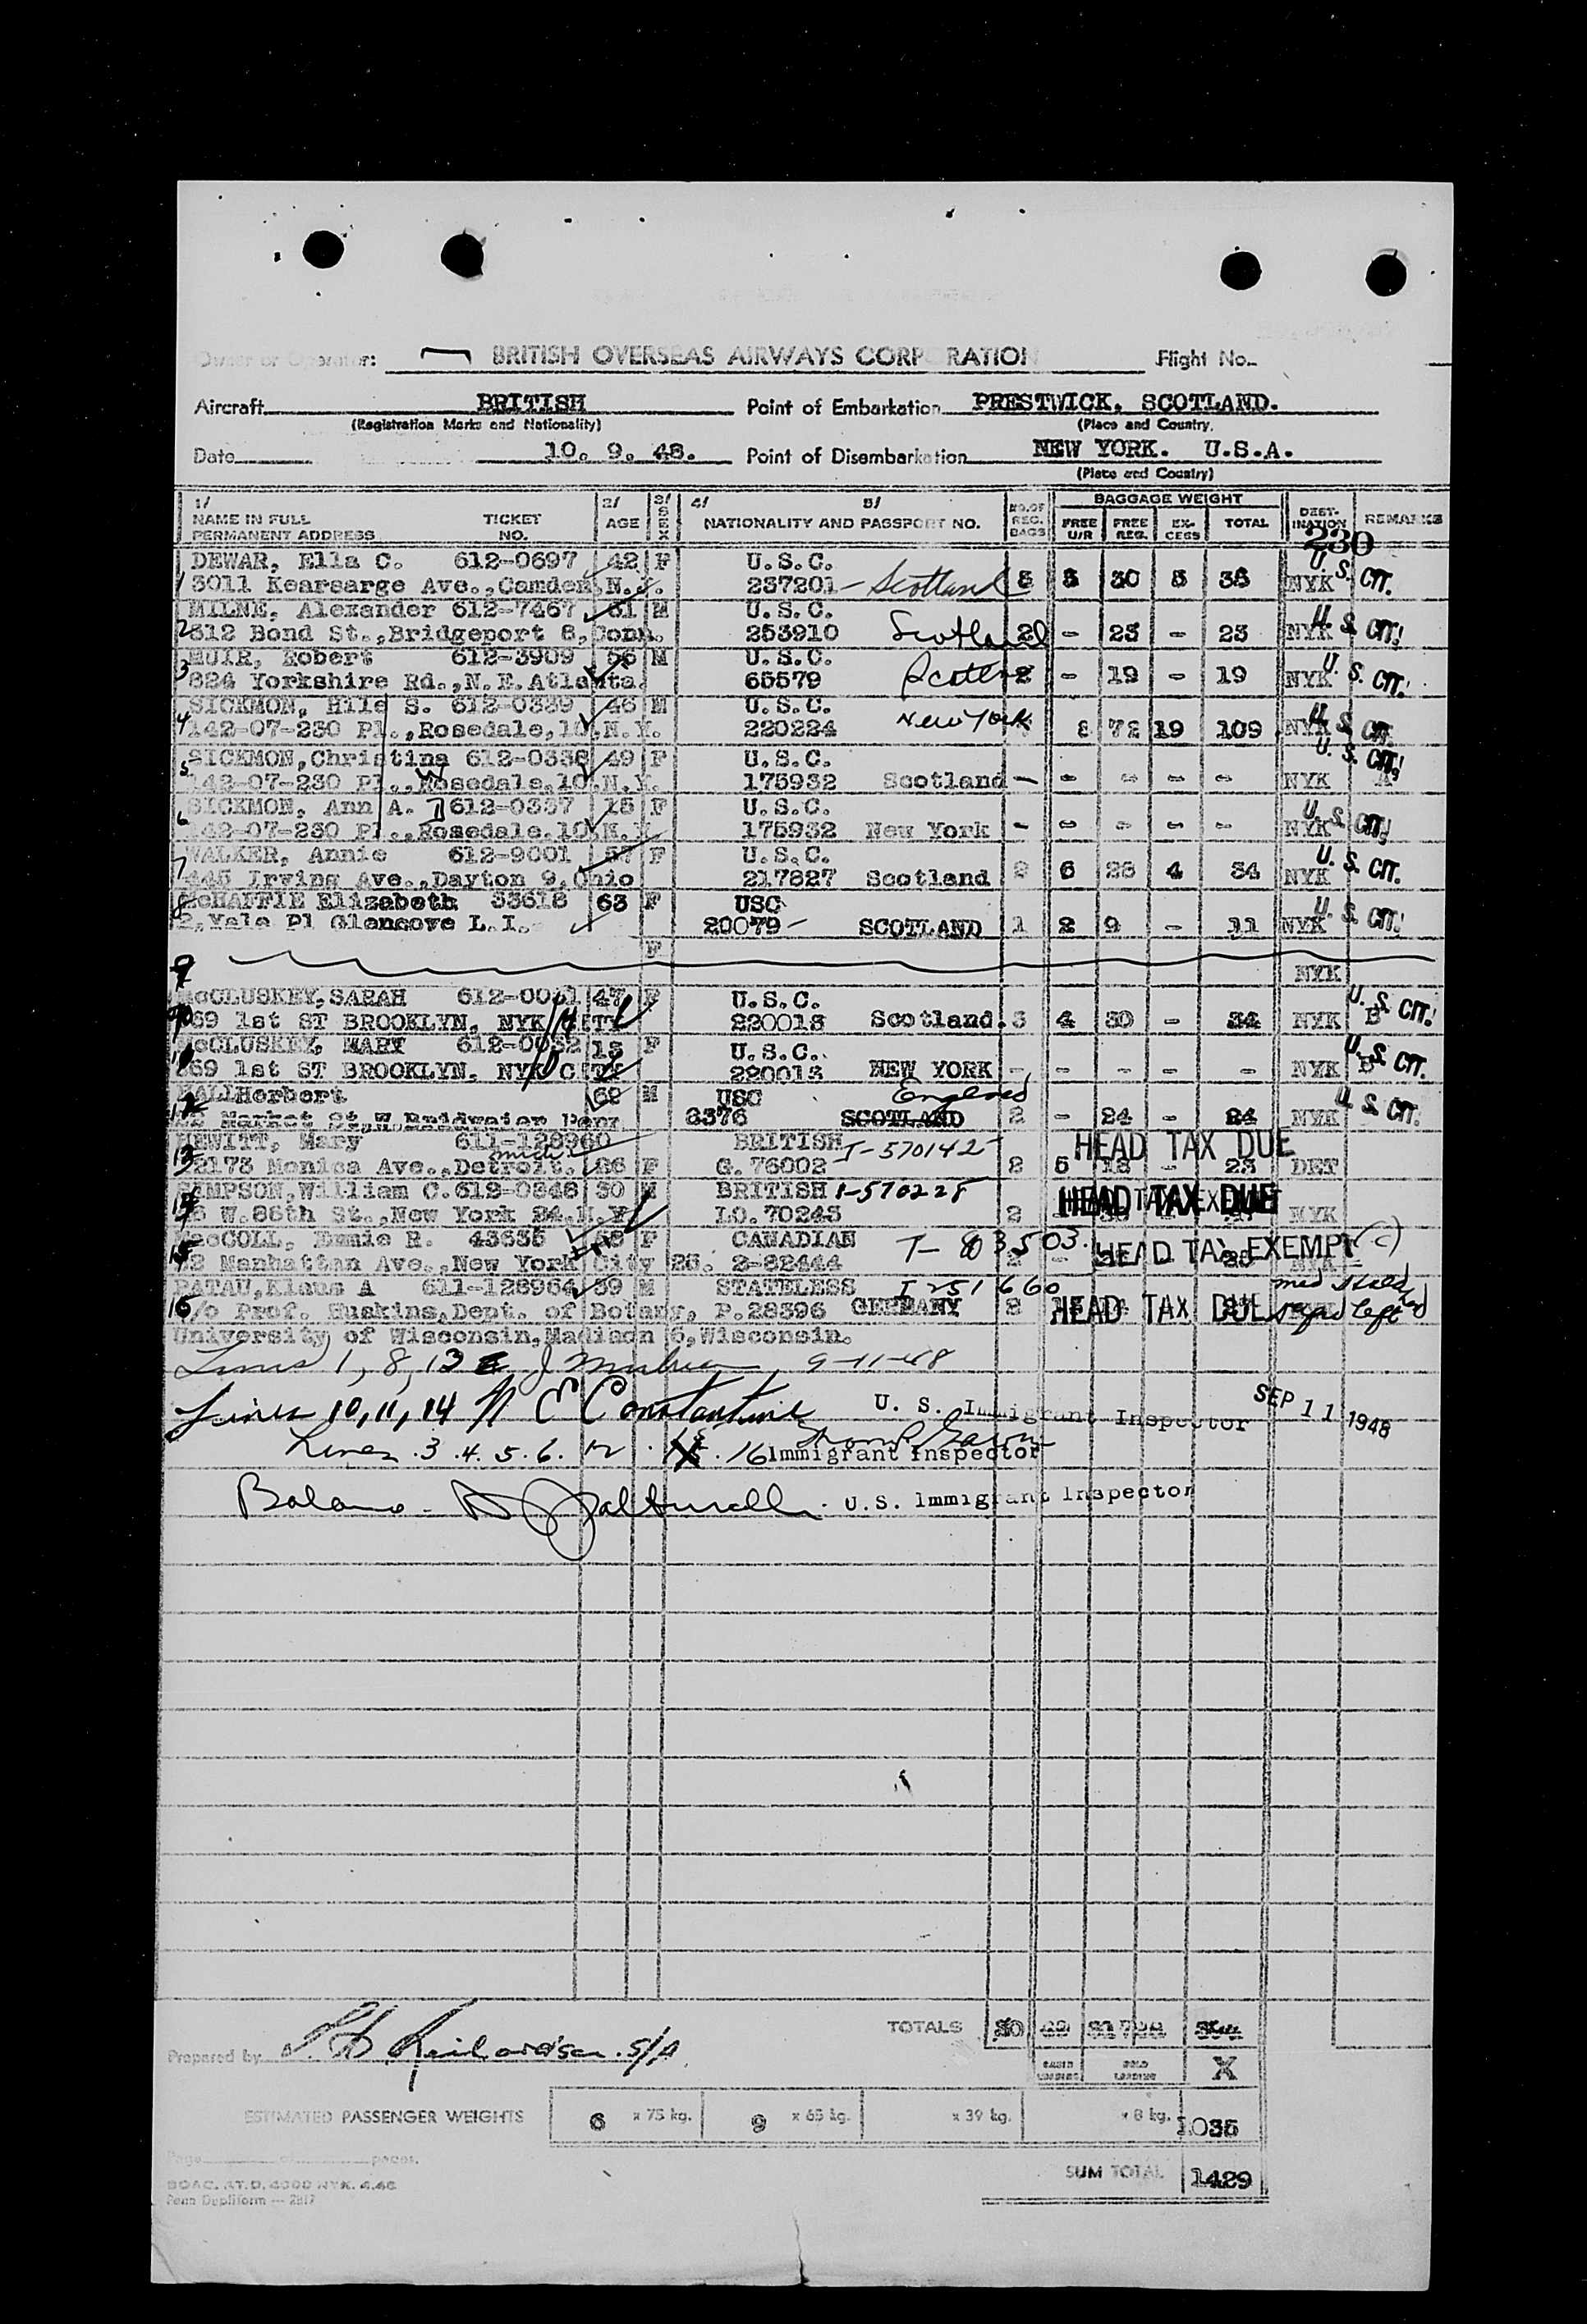 Owner or Operator: BRITISH OVERSEAS AIRWAYS CORPORATION Flight No.
Aircraft BRITISH Point of Embarkation PRESTWICK. SCOTLAND.
(Registration Marks and Nationality) (Place and Country)
Date 10. 9. 48. Point of Disembarkation NEW YORK. U.S.A.
(Place and Country)
1/ 2/ 3/ 4/ 5/ BAGGAGE WEIGHT
NAME IN FULL TICKET AGE SEX NATIONALITY AND PASSPORT NO. NO. OF REG. BAGS FREE U/R FREE REG. EX-CESS TOTAL DEST-INATION REMARKS
PERMANENT ADDRESS NO.
230
DEWAR, Ella C. 612-0697 42 F U.S.C. U.S. CIT.
1 3011 Kearsarge Ave.,Camden,N.J. 237201 - Scotland 3 30 38 NYK
MILNE, Alexander 612-7467 31 M U.S.C. U.S. CIT.
2 312 Bond St.,Bridgeport 8,Conn. 253910 Scotland 2 - 23 - 23 NYK
MUIR, Robert 612-3909 56 M U.S.C. U.S. CIT.
3 824 Yorkshire Rd.,N.E.Atlanta. 65579 2 - 19 - 19 NYK
SICKMON, S. 612-0339 46 M U.S.C. New York U.S. CIT.
4 142-07-230 Pl.,Rosedale,10,N.Y. 220224 72 19 109 NYK
SICKMON,Christina 612-0338 49 F U.S.C. U.S. CIT.
5 142-07-230 Pl.,Rosedale,10,N.Y. 175932 Scotland - - - - - NYK
SICKMON, Ann A. 612-0337 15 F U.S.C. U.S. CIT.
6 142-07-230 Pl.,Rosedale,10,N.Y. 175932 New York - - - - - NYK
WALKER, Annie 612-9001 57 F U.S.C. U.S. CIT.
7 445 Irving Ave.,Dayton 9,Ohio 217827 Scotland 2 6 28 4 34 NYK
McHAFFIE Elizabeth 33618 63 F USC U.S. CIT.
8 2,Yale Pl Glencove L.I. 20079 - SCOTLAND 1 2 9 - 11 NYK
F
9 NYK
McCLUSKEY,SARAH 612-0051 47 F U.S.C. U.S. CIT.
10 869 1st ST BROOKLYN. NYK CITY 220013 Scotland. 3 4 30 - 34 NYK B
McCLUSKEY, MARY 612-0052 13 F U.S.C. U.S. CIT.
11 869 1st ST BROOKLYN. NYK CITY 220013 NEW YORK - - - - - NYK B
HALL Herbert 62 M USC England U.S. CIT.
12 Market St,W. 3376 SCOTLAND 2 - 24 - 24 NYK
HEWITT, Mary 611-128960 BRITISH I-570142 HEAD TAX DUE
13 12173 Monica Ave.,Detroit. Mich 26 F G.76002 2 5 18 - 23 DET
SAMPSON,William C.612-0348 30 M BRITISH I-570228 HEAD TAX DUE
14 W.86th St.,New York 24.N.Y. LO.70245 2 NYK
MacCOLL, R. 43635 58 F CANADIAN T-803503. HEAD TAX EXEMPT (c)
15 Manhattan Ave.,New York City 25. 2-82444 2 - NYK
PATAU,Klaus A 611-128964 39 M STATELESS I 251660
16 c/o Prof. Huskins,Dept. of Botany, P.28396 GERMANY 2 HEAD TAX DUE
University of Wisconsin,Madison 6,Wisconsin.
Lines 1, 8, 13 9-11-48
Lines 10, 11, 14 N E Constantine U. S. Immigrant Inspector SEP 11 1948
Lines .3 .4. 5. 6. 12 . 16 Immigrant Inspector
Balance - U.S. Immigrant Inspector
TOTALS
Prepared by Richardson. S/A CABIN LOADING HOLD LOADING X
ESTIMATED PASSENGER WEIGHTS 6 x 75 kg. 9 x 65 kg. x 39 kg. x 8 kg. 1035
Page of pages.
SUM TOTAL 1429
BOAC. AT.D. 4000 NYK. 4.46
Penn Dupliform — 2817